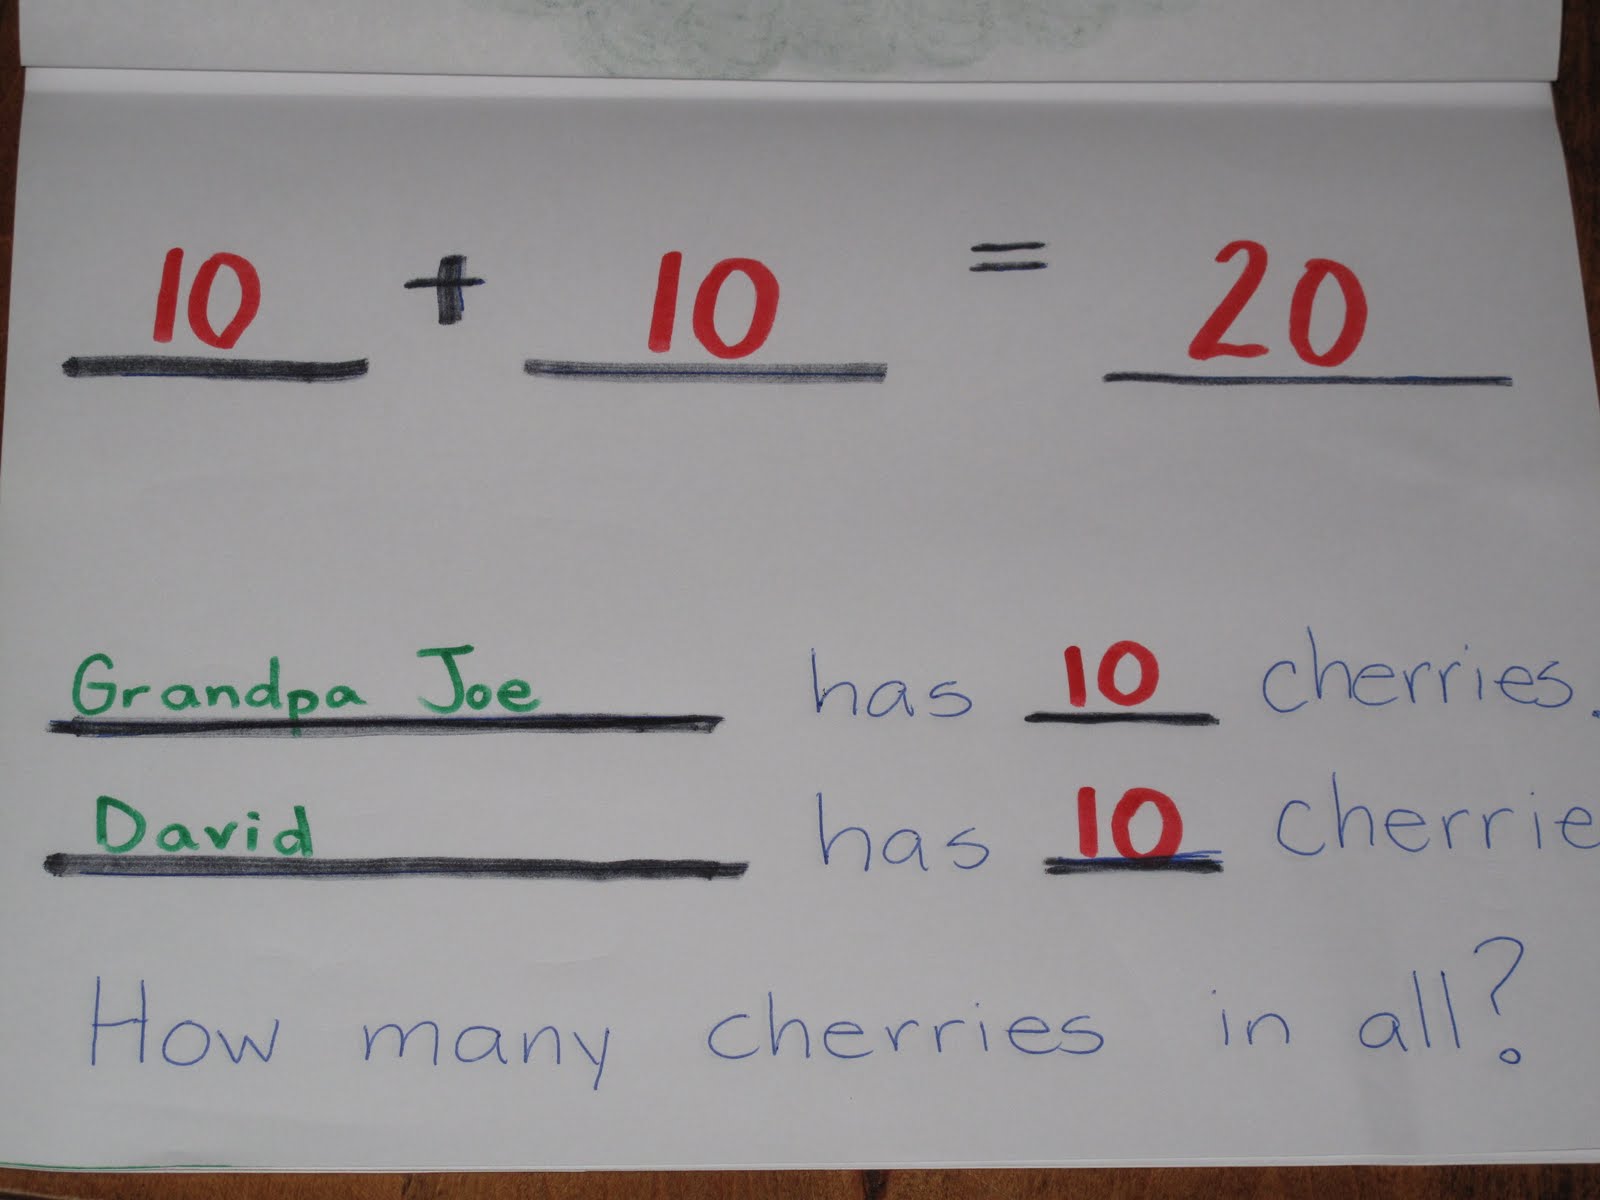 10 + 10 = 20
Grandpa Joe has 10 cherries.
David has 10 cherrie
How many cherries in all?